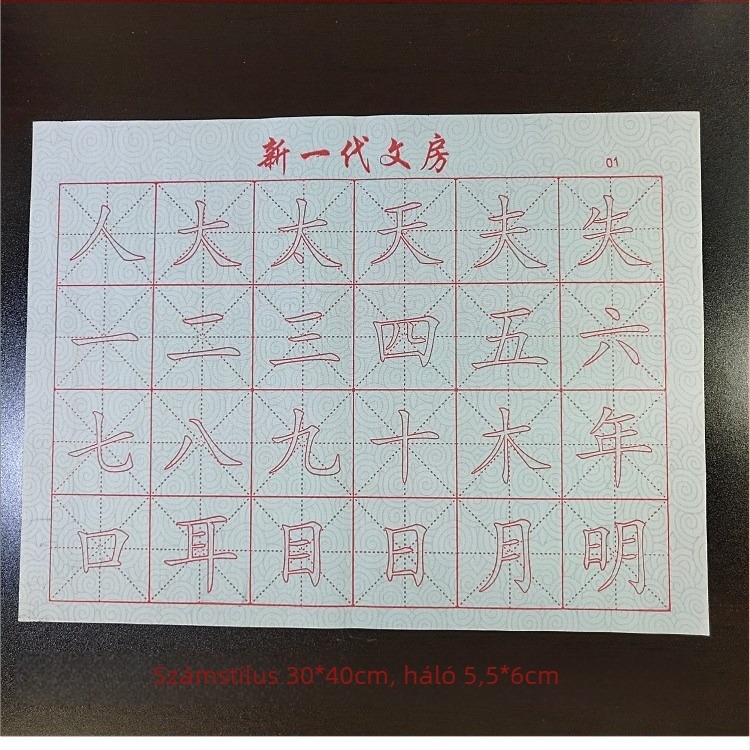 新一代文房
01
人大太天夫失
一二三四五六
七八九十木年
口耳目日月明
Számstílus 30*40cm, háló 5,5*6cm